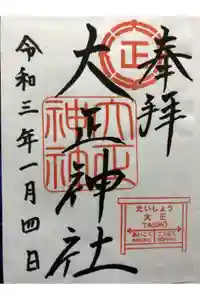 奉拝
正
大正神社
大正神社
令和三年一月四日
たいしょう
大正
TAISHŌ